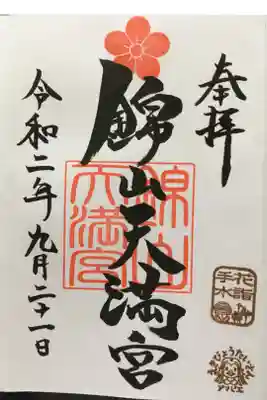 奉拝
錦山天満宮
錦山
天満宮
令和二年九月二十一日
花詣